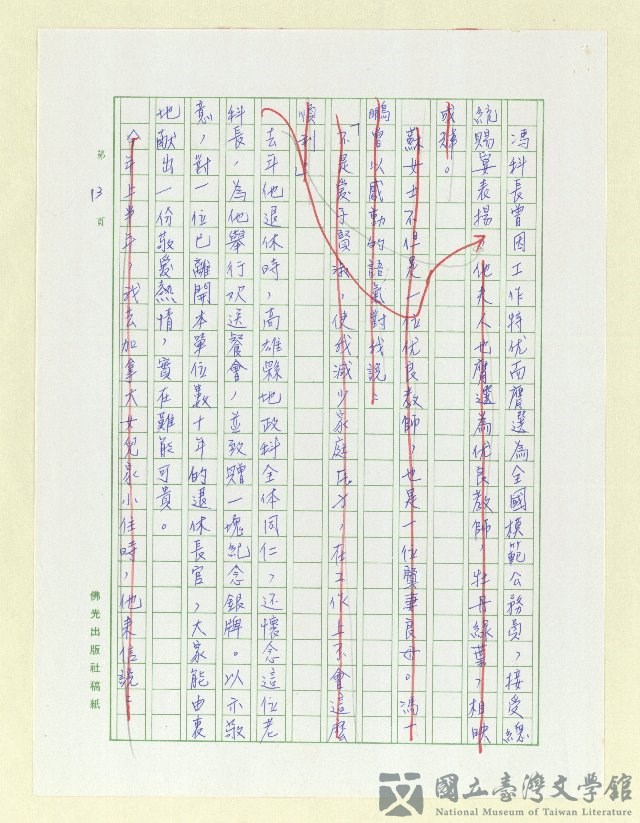 馮科長曾因工作特优而膺選為全國模範公務員，接受總
統賜宴表揚，他夫人也膺選為优良教師，牡丹綠葉，相映
成趣。
蘇女士不但是一位优良教師，也是一位賢妻良母。馮一
鵬曾以感動的語氣對我說：
「不是愛子賢淑，使我減少家庭压力，在工作上不會這麼
順利」
去年他退休時，高雄縣地政科全体同仁，还懷念這位老
科長，為他舉行欢送餐會，並致贈一塊紀念銀牌。以示敬
意，對一位已離開本單位數十年的退休長官，大家能由衷
地献出一份敬爱熱情，實在難能可貴。
今年上半年，我去加拿大女兒家小住時，他来信說：
第 13 頁
佛光出版社稿紙
國立臺灣文學館
National Museum of Taiwan Literature